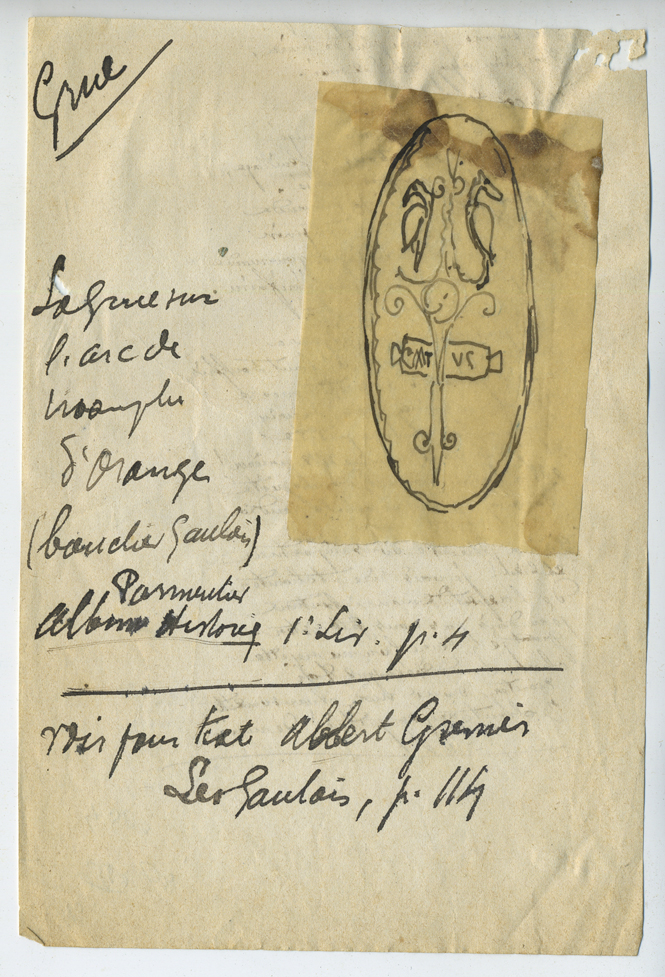 Grue
La grue sur
l'arc de
triomphe
d'Orange
(bouclier Gaulois)
Parmentier
Album Historiq 1e Liv. p. 4
CMT VS
voir pour texte Albert Grenier
Les Gaulois, p. 114